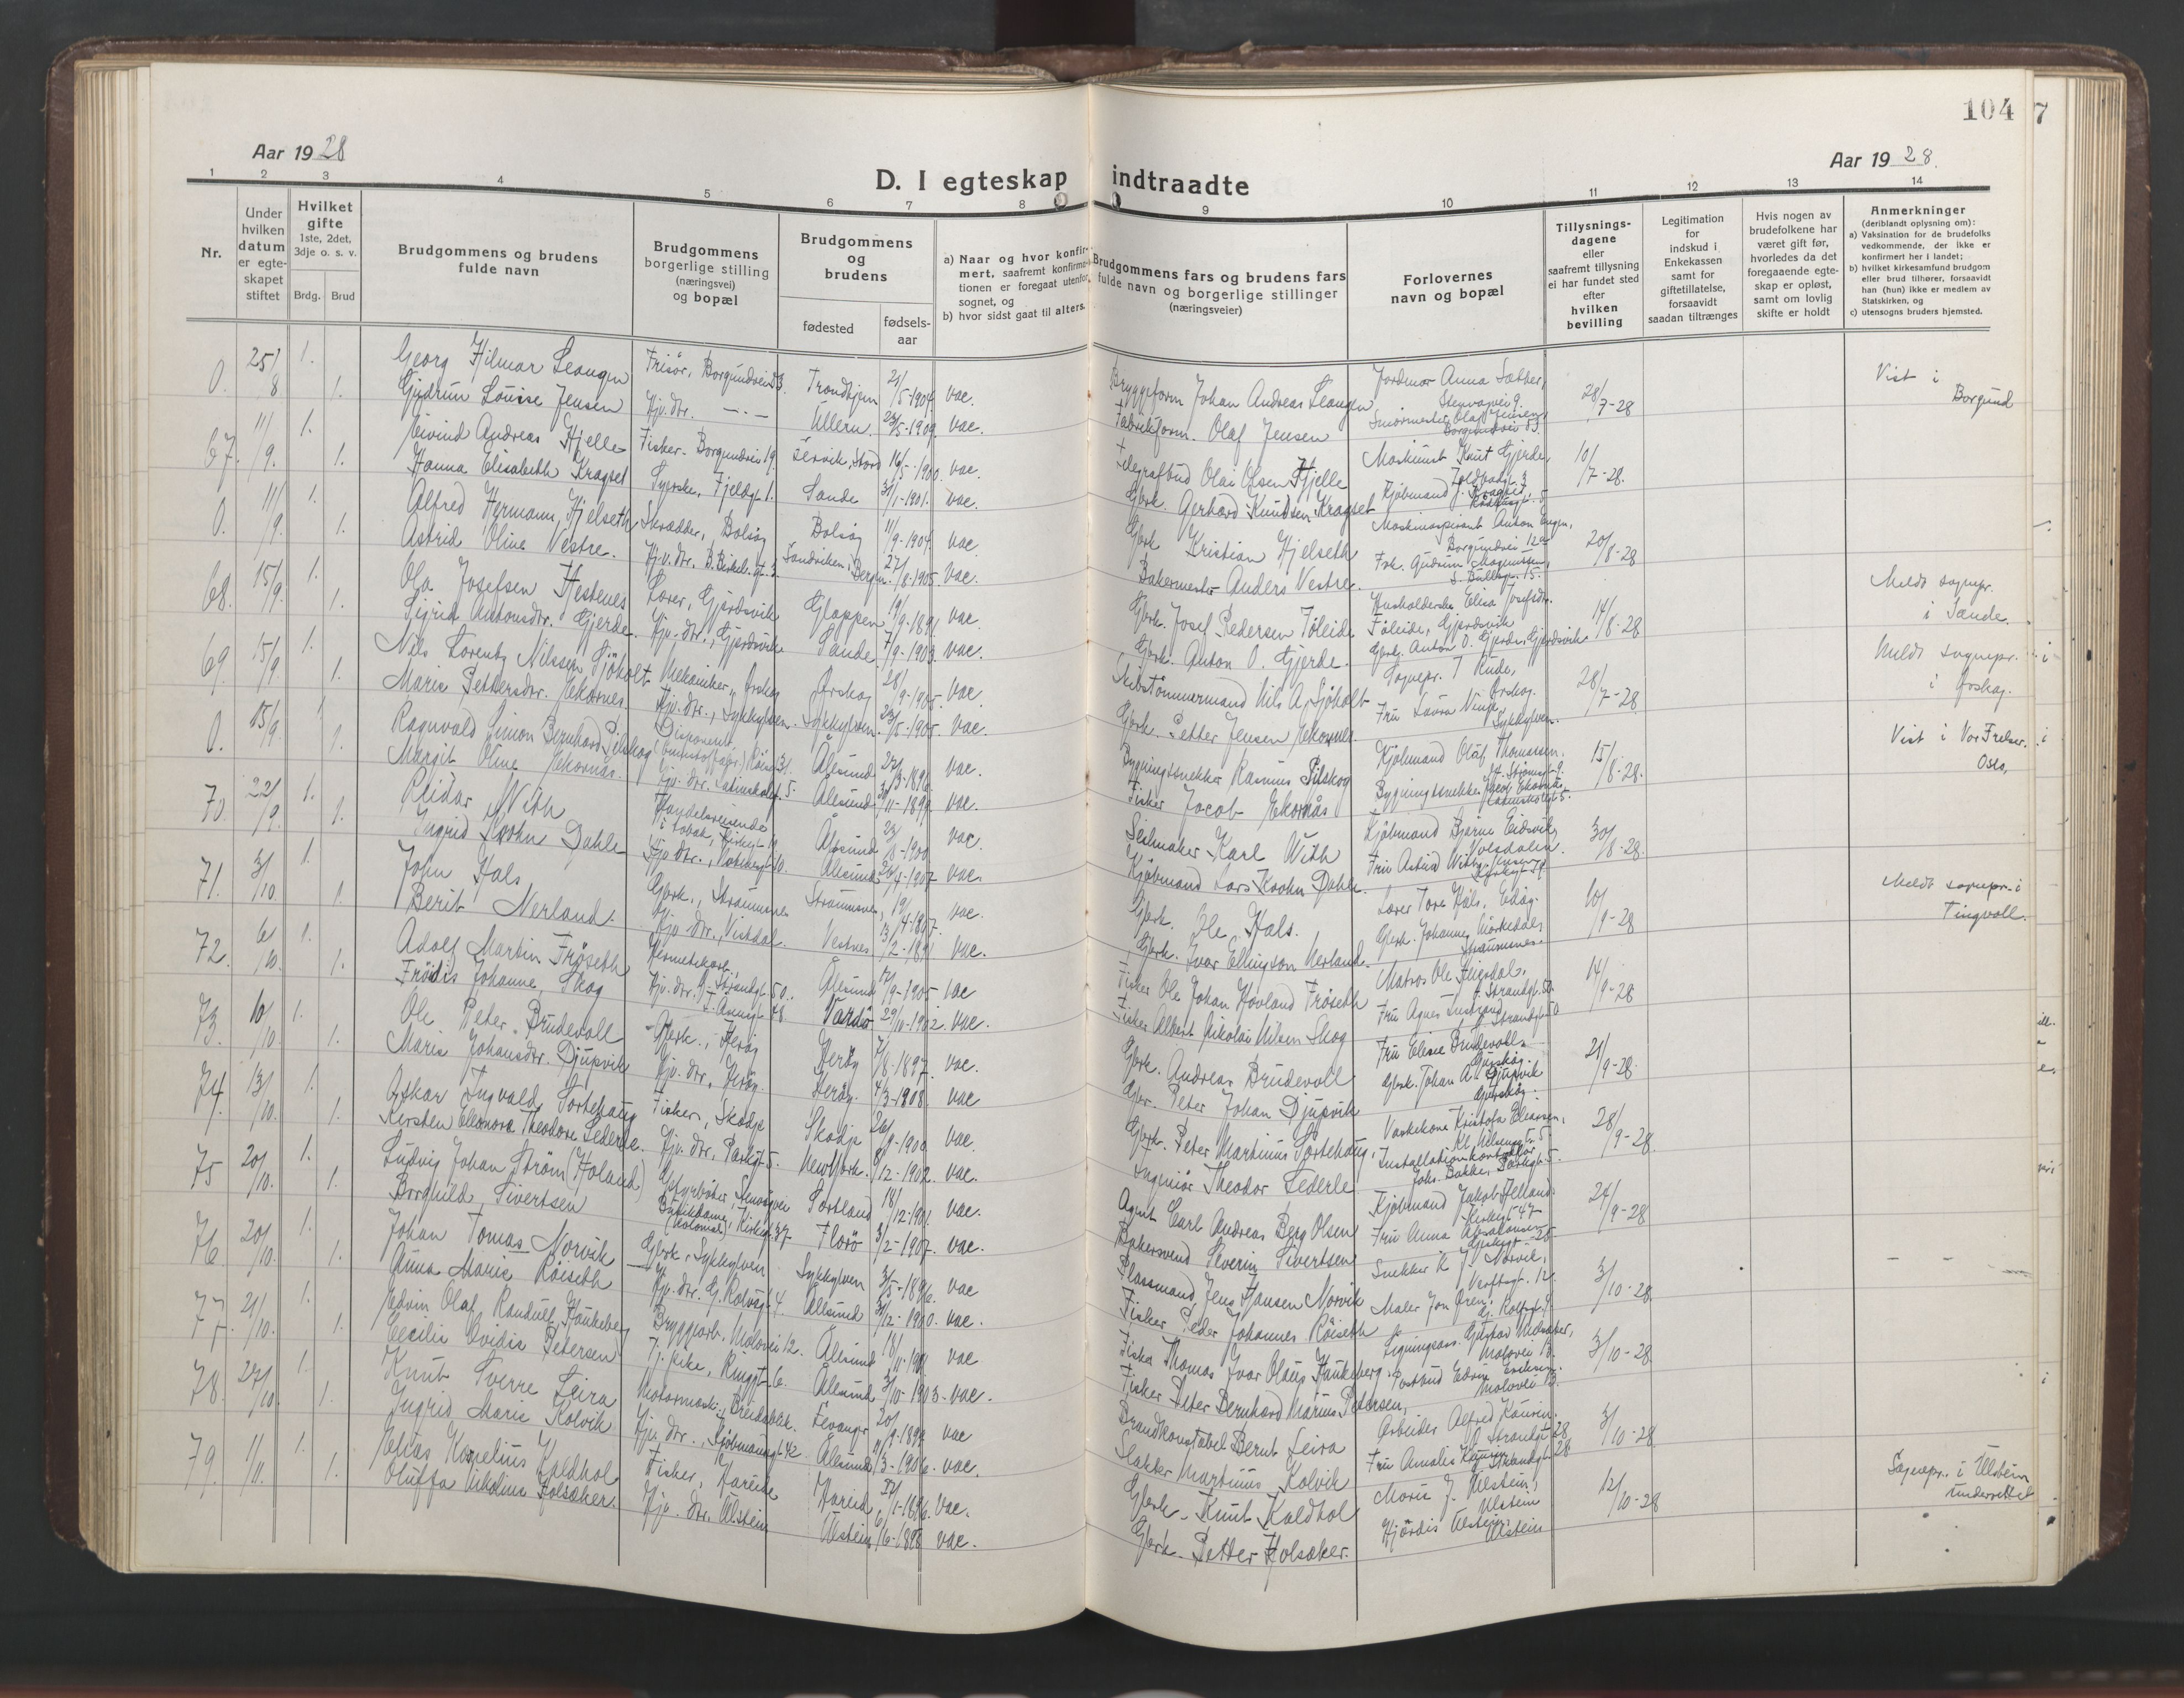 104
7
Aar 1928
Aar 1928.
D. I egteskap indtraadte
1 2 3 4 5 6 7 8 9 10 11 12 13 14
Nr.
Under hvilken datum er egte-skapet stiftet
Hvilket gifte
1ste, 2det, 3dje o. s. v.
Brdg. Brud
Brudgommens og brudens fulde navn
Brudgommens borgerlige stilling (næringsvei) og bopæl
Brudgommens og brudens
fødested
fødsels-aar
a) Naar og hvor konfir-mert, saafremt konfirma-tionen er foregaat utenfor sognet, og
b) hvor sidst gaat til alters.
Brudgommens fars og brudens fars fulde navn og borgerlige stillinger (næringsveier)
Forlovernes navn og bopæl
Tillysnings-dagene eller saafremt tillysning ei har fundet sted efter hvilken bevilling
Legitimation for indskud i Enkekassen samt for giftetillatelse, forsaavidt saadan tiltrænges
Hvis nogen av brudefolkene har været gift før, hvorledes da det foregaaende egte-skap er opløst, samt om lovlig skifte er holdt
Anmerkninger
(deriblandt oplysning om):
a) Vaksination for de brudefolks vedkommende, der ikke er konfirmert her i landet;
b) hvilket kirkesamfund brudgom eller brud tilhører, forsaavidt han (hun) ikke er medlem av Statskirken, og
c) utensogns bruders hjemsted.
0. 25/8 1. Georg Hilmar Leangen Frisör, Borgundvei 83. Trondhjem 21/5-1904. vac. Bryggeform Johan Andreas Leangen Jordmor Anna Sætber, 28/7-28 Vist i Borgund
1. Gudrun Louise Jensen Hjv. dtr. -.- Ullern 23/5-1909. vac. Fabrikform. Olaf Jensen Smörmester Olaf Jensen, Borgundvei 83.
67. 11/9. 1. Eivind Andreas Hjelle Fisker - Borgundvei 19. 16/5-1900. vac. Telegrafbud Olai Olsen Hjelle Maskinist Knut Gjerde, 10/7-28.
1. Hanna Elisabeth Kragset Syerske, Fjeldgt. 1. Sande 31/1-1901. vac. Gbrk. Gerhard Knudsen Kragset Kjöbmand J. Kragset
0. 11/9 1. Alfred Hermann Hjelseth Skrædder, Bolsöy Bolsöy 11/9-1904. vac. Gbrk Kristian Hjelseth Maskinaspirant Anton Engen, Borgundvei 12 20/8-28
1. Astrid Oline Vestre. Hjv. dtr. Sandviken, Bergen. 27/8-1905. vac. Bakermester Anders Vestre. Frk. Gudrun Magnussen,
68. 15/9. 1. Ola Josefsen Hestenes Lærer, Gjerdsvik Gloppen 19/9-1891. vac. Gbrk. Josef Pedersen Föleide Husholderske Elisa Josefsdtr. Föleide, Gjerdsvik 14/8-28 Meldt sognepr. i Sande.
1. Sigrid Antonsdtr. Gjerde. Hjv. dtr., Gjerdsvik Sande 7/9-1903. vac. Gbrk. Anton O. Gjerde. Gbrk. Anton O. Gjerde, Gjerdsvik
69. 15/9 1. Nils Lorentz Nilssen Sjöholt Mekaniker, Örskog Örskog 28/9-1905. vac. Skibstömmermand Nils A. Sjöholt Sognepr. T Rude, Örskog. 28/7-28 Meldt sognepr. i Örskog.
1. Marie Pettersdtr. Ekornes Hjv. dtr., Sykkylven. Sykkylven. 23/5-1905. vac. Gbrk. Petter Jensen Ekornes. Fru Laura Vinje, Sykkylven.
0. 15/9. 1 Ragnvald Simon Bernhard Pilskog Disponent Ålesund 22/3-1896. vac. Bygningssnekker Rasmus Pilskog Kjöbmand Oluf Thomassen. 15/8-28. Vist i Vor Frelser. Oslo,
1. Margit Oline Ekornås. Hjv. dtr. Latinskolegt. 5. Ålesund 30/11-1899. vac. Fisker Jacob Ekornås Bygningssnekker Jacob Ekornås Latinskolegt. 5.
70. 22/9. 1. Reidar With Handelsreisende i tobak, Kirkegt. Ålesund 23/8-1900 vac. Seilmaker Karl With Kjöbmand Bjarne Eidsvik, Volsdalen. 30/8-28.
1. Ingrid Krohn Dahle Hjv. dtr. Ålesund 26/4-1907. vac. Kjöbmand Lars Krohn Dahle. Fru Astrid With Jensen
71. 3/10. 1. John Hals Gbrk., Straumsnes Straumsnes, 19/4-1867. vac. Gbrk. Ole Hals. Lærer Tore Hals, Edöy. 10/9-28 Meldt sognepr. i Tingvoll.
1. Berit Nerland. Hjv. dtr., Vistdal. Vestnes 13/2-1891 vac. Gbrk. Ivar Ellingson Nerland. Gbrk. Johannes Mörkedal, Straumsnes.
72. 6/10. 1. Adolf Martin Fröseth Hermetikarb., Strandgt. 50. Ålesund 17/9-1905 vac Fisker Ole Johan Hovland Fröseth Matros Ole Heigsdal, Strandgt. 50 14/9-28
1. Fröidis Johanne Skog Hjv. dtr. Vardö 29/10-1902. vac. Fisker Albert Nikolai Nilsen Skog Fru Agnes Strandgt. 50
73. 10/10. 1. Ole Peter Brudevoll Gbrk., Heröy Heröy 7/8-1897. vac. Gbrk. Andreas Brudevoll Fru Eline Brudevoll, Gurskøy. 21/9-28.
1. Marie Johansdtr. Djupvik Hjv. dtr., Heröy. Heröy. 4/3-1908. vac Gbr. Peter Johan Djupvik Gbrk. Johan A. Djupvik Gurskøy.
74. 13/10. 1. Oskar Ingvald Sortehaug Fisker, Skodje Skodje 26/9-1900. vac. Gbrk. Peter Martinus Sortehaug, Vaskekone Kristofa Eliassen, Kl. Nilsensgt. 5. 28/9-28.
1. Kirsten Eleonora Theodore Lederle. Hjv. dtr., Parkgt. 5. New York. 8/12-1902. vac. Ingeniör Theodor Lederle Installationskontrollör Johs. Bakke, Parkgt. 5.
75 20/10. 1. Ludvig Johan Ström (Holand) Styrbåter, Stenvågvei Sortland 18/12-1901. vac. Agent Carl Andreas Berg Olsen Kjöbmand Jakob Helland, Kirkegt. 47 24/9-28
1. Borghild Sivertsen Butikdame, (Kolonial), Kirkegt. 37 Florö 3/2-1907. vac. Bakersvend Severin Sivertsen Fru Anna Absalonsen
76. 20/10. 1. Johan Tomas Norvik Gbrk., Sykkylven Sykkylven 3/5-1896. vac Plassmand Jens Hansen Norvik Snekker K J. Norvik, Verftsgt. 12. 3/10-28. - -
1. Anna Marie Röiseth Hjv. dtr. G. Rolvsgt. 4. Ålesund 31/12-1900. vac. Fisker Peder Johannes Röiseth Maler Jon Ören,
77. 21/10. 1. Edvin Olaf Randulf Haukeberg Bryggearb., Molovei 12. Ålesund 18/11-1901 vac Fisker Thomas Ivar Olaus Haukeberg. Ligningsass. Gustav Midsæter, Molovei 13. 3/10-28.
1. Cecilie Ovidia Petersen Ålesund 31/10-1903. vac. Fisker Peter Bernhard Marius Petersen, Postbud Edvin Eriksen. Molovei 13.
78. 27/10. 1. Knut Sverre Leira Motormask., Breidablik. Levanger 20/9-1899. vac Brandkonstabel Bernt Leira Arbeider Alfred Kaurin, Strandgt. 28 3/10-28
1. Ingrid Marie Kolvik Hjv. dtr., Kjöbmannsgt. 42 Ålesund 11/3-1906. vac. Slakter Martinus Kolvik Fru Amalie Kaurin Strandgt. 28.
79. 1/11. 1. Elias Kornelius Kaldhol Fisker, Hareide Hareid, 1-1896. vac. Gbrk. Knut Kaldhol Marie J. Ulstein, Ulstein 12/10-28 Sognepr. i Ulstein underrettet
1. Oluffa Nikoline Holsæker. Hjv. dtr. Ulstein Ulstein 6/6-1898 vac. Gbrk. Petter Holsæker. Hjördis Ulstein, Ulstein